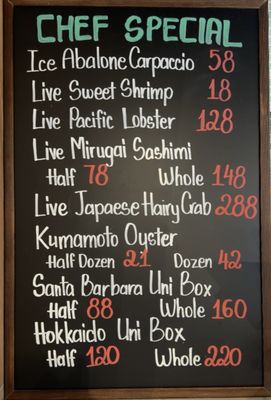 CHEF SPECIAL
Ice Abalone Carpaccio 58
Live Sweet Shrimp 18
Live Pacific Lobster 128
Live Mirugai Sashimi
Half 78 Whole 148
Live Japaese Hairy Crab 288
Kumamoto Oyster
Half Dozen 21 Dozen 42
Santa Barbara Uni Box
Half 88 Whole 160
Hokkaido Uni Box
Half 120 Whole 220